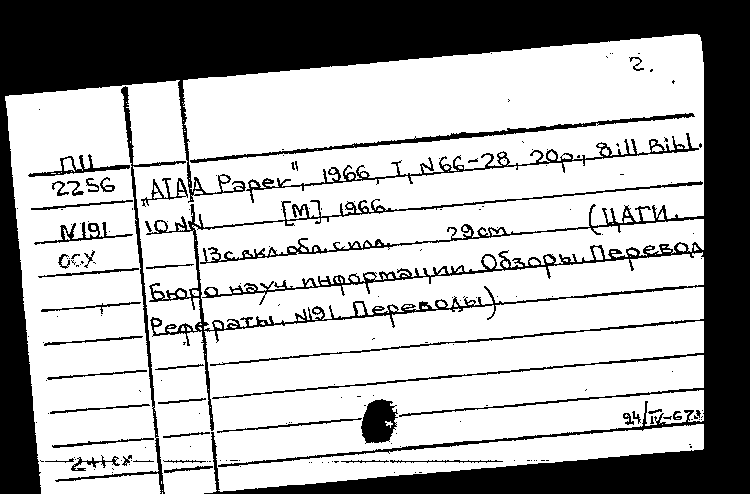 2.
П11
2256 „AIAA Paper", 1966, I, N66-28, 20p., 8 ill. Bibl.
N191 10 NN [М], 1966.
ОСХ 13 с. вкл. обл. с илл. 29 cm. (ЦАГИ.
Бюро науч. информации. Обзоры. Перевод
Рефераты. N191. Переводы).
24/IV-67